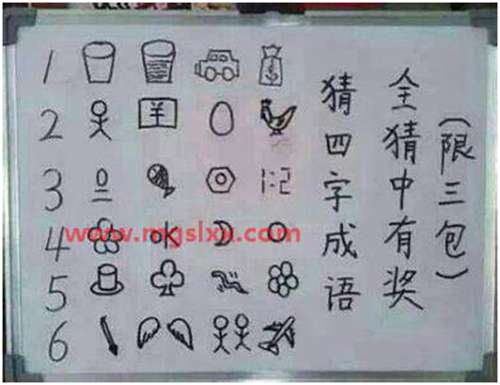 1
2 ¥
3 1:2
4 ok
5
6
猜四字成语
全猜中有奖
(限三包)
www.mgslxx.com